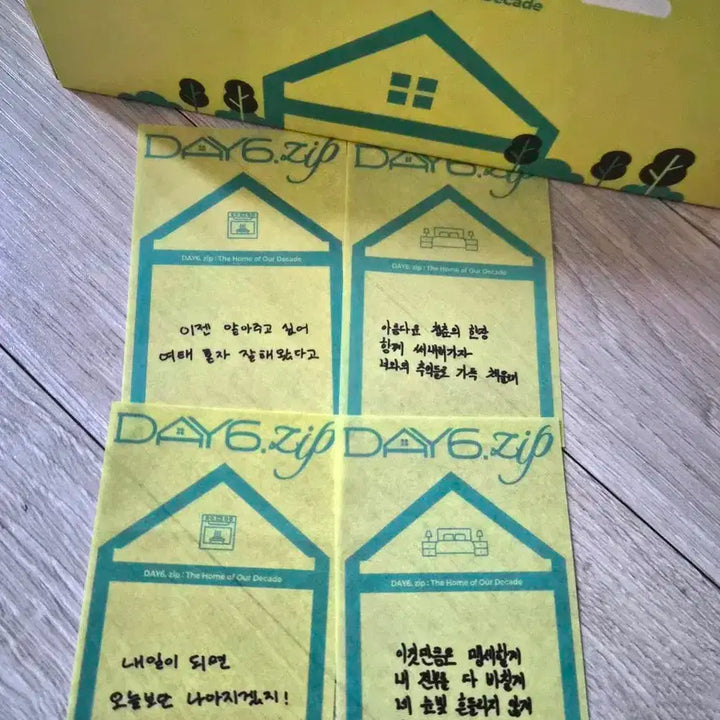 Decade
DAY6.zip
DAY6. zip : The Home of Our Decade
이젠 알아주고 싶어
여태 혼자 잘해왔다고
DAY6.zip
DAY6. zip : The Home of Our Decade
아름다운 청춘의 한장
함께 써내려가자
너와의 추억들로 가득 채울래
DAY6.zip
DAY6. zip : The Home of Our Decade
내일이 되면
오늘보단 나아지겠지!
DAY6.zip
DAY6. zip : The Home of Our Decade
이것만큼은 맹세할게
내 전부를 다 바칠게
네 눈빛 흔들리지 않게